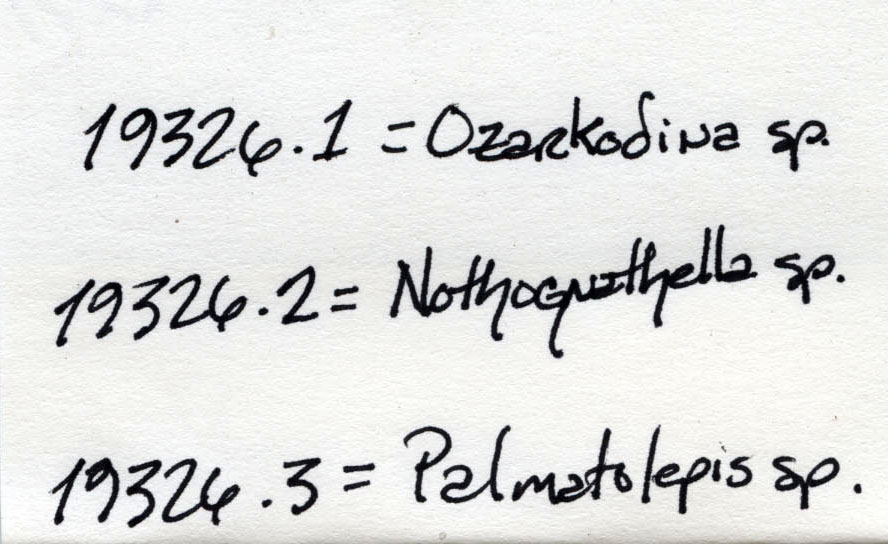 19326.1 = Ozarkodina sp.
19326.2 = Nothognathella sp.
19326.3 = Palmatolepis sp.